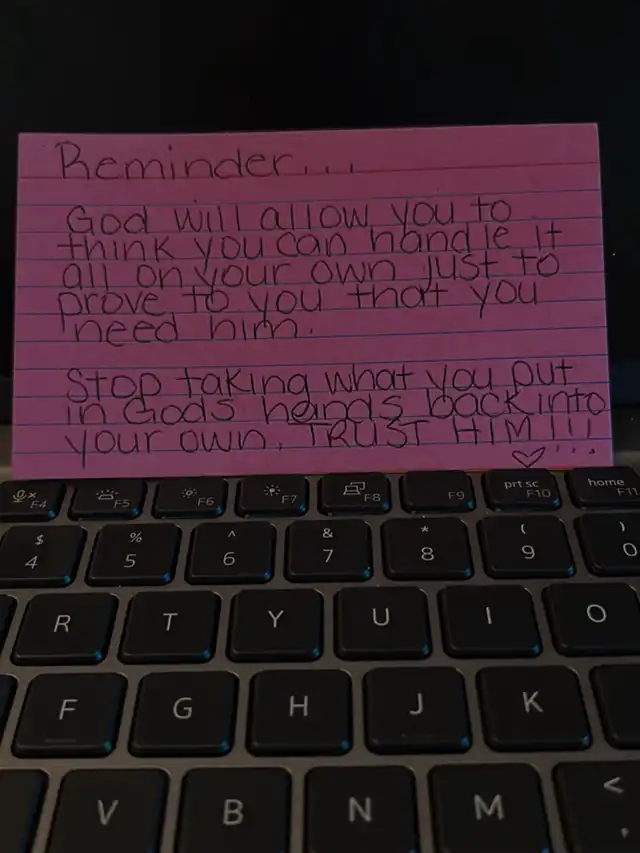 Reminder...
God will allow you to
think you can handle it
all on your own just to
prove to you that you
need him.
Stop taking what you put
in Gods hands back into
your own. TRUST HIM!!!
F4 F5 F6 F7 F8 F9 prt sc F10 home F11
$ % ^ & * ( )
4 5 6 7 8 9 0
R T Y U I O
F G H J K
V B N M < ,